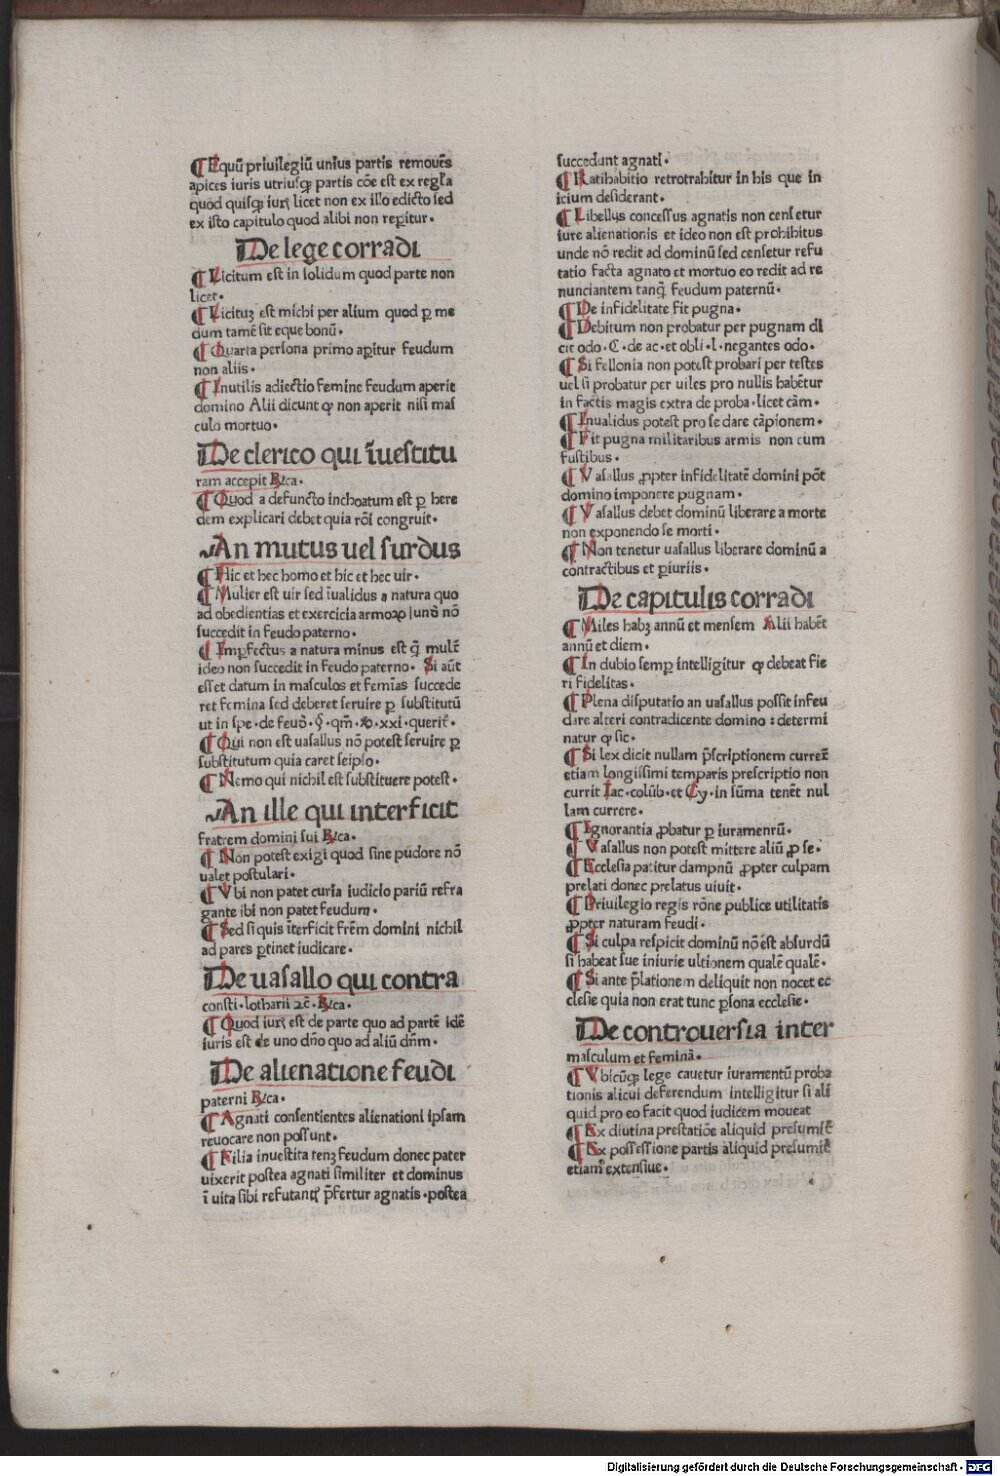 ¶ Equū priuilegiū unius partis remouēs
apices iuris utriusqꝫ partis cōe est ex regl̄a
quod quisqꝫ iurꝭ licet non ex illo edicto sed
ex isto capitulo quod alibi non reꝑitur.
De lege corradi
¶ Licitum est in solidum quod parte non
licet.
¶ Licituꝫ est michi per alium quod ꝑ me
dum tamē sit eque bonū.
¶ Quarta persona primo aꝑitur feudum
non aliis.
¶ Inutilis adiectio femine feudum aperit
domino Alii dicunt qꝫ non aperit nisi mas
culo mortuo.
De clerico qui īuestitu
ram accepit Rl̓ca.
¶ Quod a defuncto inchoatum est ꝑ here
dem explicari debet quia rōi congruit.
An mutus uel surdus
¶ Hic et hec homo et hic et hec uir.
¶ Mulier est uir sed īualidus a natura quo
ad obedientias et exercicia armoꝝ iund̄ nō
succedit in feudo paterno.
¶ Imꝑfectus a natura minus est q̄ mulr̄
ideo non succedit in feudo paterno. Si aūt
esset datum in masculos et femīas succede
ret femina sed deberet seruire ꝑ substitutū
ut in spe.de feud̄.§.qm̄.xxi.querit᷑.
¶ Qui non est uasallus nō potest seruire ꝑ
substitutum quia caret seipso.
¶ Nemo qui nichil est substituere potest.
An ille qui interficit
fratrem domini sui Rl̓ca.
¶ Non potest exigi quod sine pudore nō
ualet postulari.
¶ Vbi non patet curia iudicio pariū refra
gante ibi non patet feudum.
¶ Sed si quis īterficit frēm domini nichil
ad pares ꝑtinet iudicare.
De uasallo qui contra
consti.lotharii ⁊c̄.Rl̓ca.
¶ Quod iurꝭ est de parte quo ad partē idē
iuris est de uno dn̄o quo ad aliū dn̄m.
De alienatione feudi
paterni Rl̓ca.
¶ Agnati consentientes alienationi ipsam
reuocare non possunt.
¶ Filia inuestita tenꝫ feudum donec pater
uixerit postea agnati similiter et dominus
ī uita sibi refutantꝭ p̄fertur agnatis.postea
succedunt agnati.
¶ Ratihabitio retrotrahitur in his que in
icium desiderant.
¶ Libellus concessus agnatis non censetur
iure alienationis et ideo non est prohibitus
unde nō redit ad dominū sed censetur refu
tatio facta agnato et mortuo eo redit ad re
nunciantem tanq̄ feudum paternū.
¶ De infidelitate fit pugna.
¶ Debitum non probatur per pugnam di
cit odo.C.de ac.et obli.l.negantes odo.
¶ Si fellonia non potest probari per testes
uel si probatur per uiles pro nullis habētur
in factis magis extra de proba.licet cām.
¶ Inualidus potest pro se dare cāpionem.
¶ Fit pugna militaribus armis non cum
fustibus.
¶ Vasallus ꝓpter infidelitatē domini pōt
domino imponere pugnam.
¶ Vasallus debet dominū liberare a morte
non exponendo se morti.
¶ Non tenetur uasallus liberare dominū a
contractibus et ꝑiuriis.
De capitulis corradi
¶ Miles habꝫ annū et mensem Alii habēt
annū et diem.
¶ In dubio semꝑ intelligitur qꝫ debeat fie
ri fidelitas.
¶ Plena disputatio an uasallus possit infeu
dare alteri contradicente domino: determi
natur qꝫ sic.
¶ Si lex dicit nullam p̄scriptionem currer̄
etiam longissimi temparis prescriptio non
currit Iac.colūb.et Cy.in sūma tenēt nul
lam currere.
¶ Ignorantia ꝓbatur ꝑ iuramenrū.
¶ Vasallus non potest mittere aliū ꝓ se.
¶ Ecclesia patitur dampnū ꝓpter culpam
prelati donec prelatus uiuit.
¶ Priuilegio regis rōne publice utilitatis
ꝓpter naturam feudi.
¶ Si culpa respicit dominū nō est absurdū
si habeat sue iniurie ultionem qualē qualē.
¶ Si ante p̄lationem deliquit non nocet ec
clesie quia non erat tunc ꝑsona ecclesie.
De controuersia inter
masculum et feminā.
¶ Vbicūqꝫ lege cauetur iuramentū proba
tionis alicui deferendum intelligitur si ali
quid pro eo facit quod iudicem moueat
¶ Ex diutina prestatiōe aliquid presumit᷑
¶ Ex possessione partis aliquid presumit᷑
etiam extensiue.
Digitalisierung gefördert durch die Deutsche Forschungsgemeinschaft - DFG